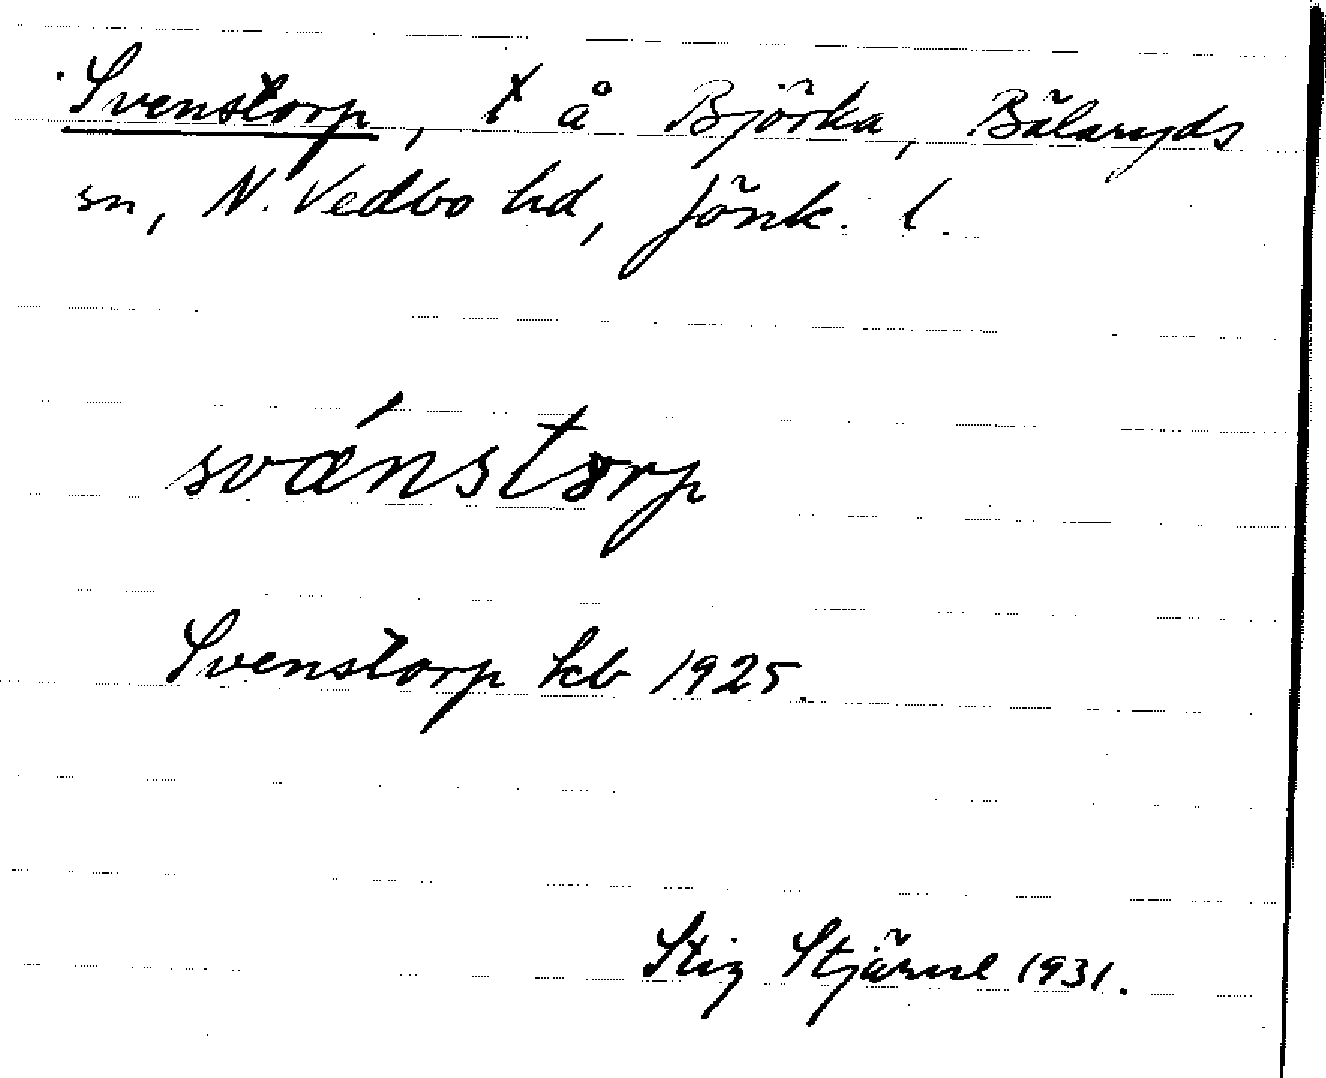 Svenstorp, t å Björka, Bälaryds
sn, N. Vedbo hd, Jönk. l.
svánstorp
Svenstorp kb 1925.
Stig Stjärne 1931.